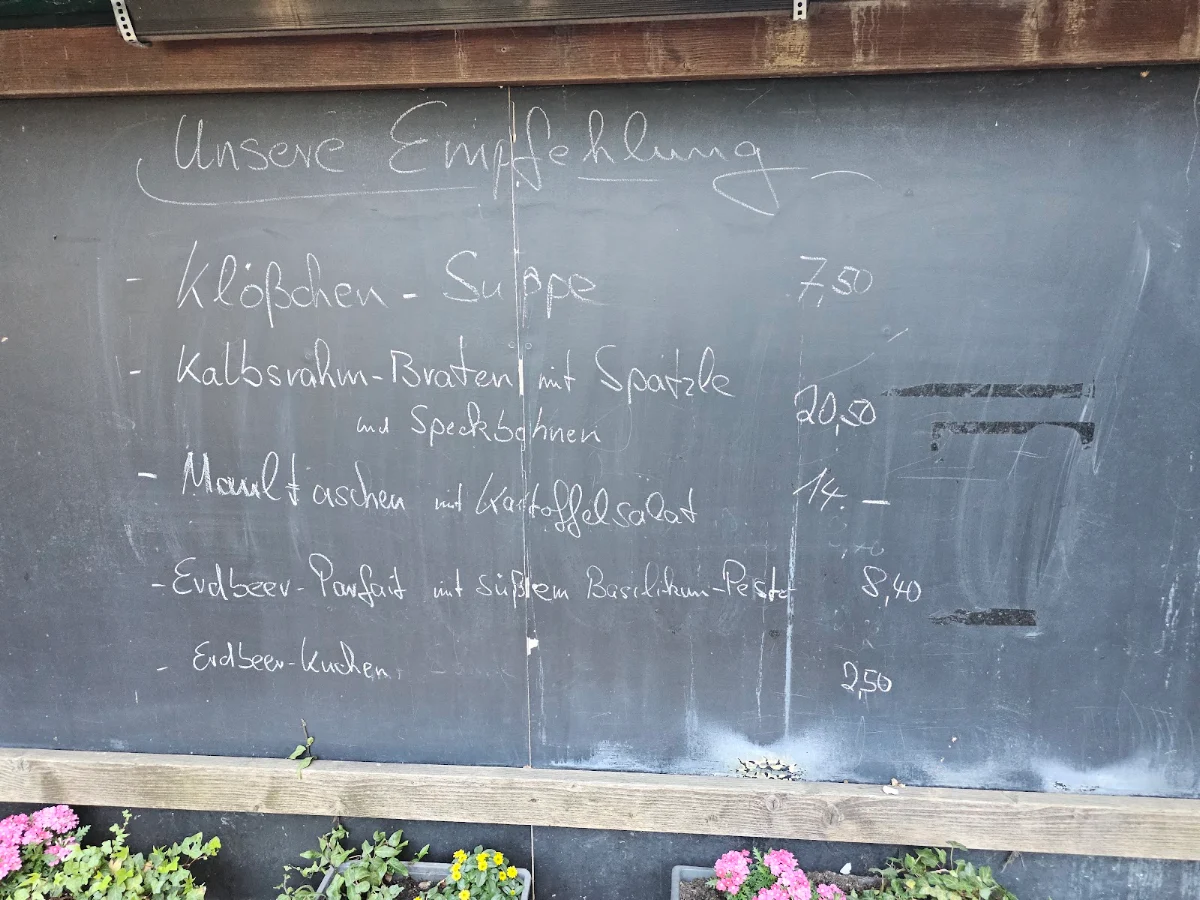 Unsere Empfehlung
- Klößchen - Suppe 7,50
- Kalbsrahm-Braten mit Spätzle
und Speckbohnen 20,50
- Maultaschen mit Kartoffelsalat 14.-
- Erdbeer-Parfait mit süßem Basilikum-Pesto 8,40
- Erdbeer-Kuchen 2,50